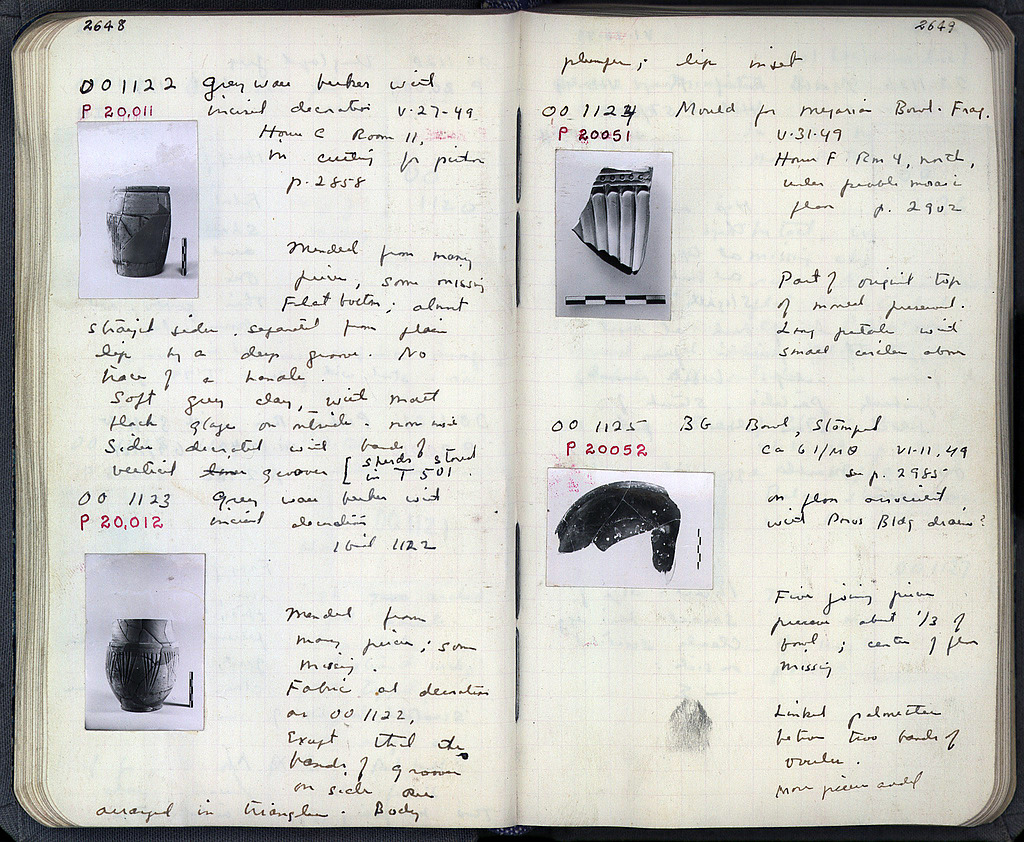 2648
OO 1122 Grey ware beaker with
P 20,011 incised decoration V-27-49
House C Room 11,
in cutting for
p. 2858
Mended from many
pieces, some missing
Flat bottom; almost
straight sides, separated from plain
lip by a deep groove. No
trace of a handle.
Soft grey clay, with matt
black glaze on outside.
Sides decorated with bands of
vertical grooves [Sherds stored
in T 501.
OO 1123 Grey ware beaker with
P 20,012 incised decoration
1122
Mended from
many pieces; some
missing.
Fabric and decoration
as OO 1122,
Except that the
bands of grooves
on side are
arranged in triangles. Body
2649
plumper; lip inset
OO 1124 Mould for megarian Bowl. Frag.
P 20051 V-31-49
House F Rm 4, north,
under pebble mosaic
floor p. 2902
Part of original top
of mould preserved.
Long petals with
small circles above
OO 1125 BG Bowl, Stamped
P 20052 Ca 61/ΜΘ VI-11,49
see p. 2985
on floor associated
with Poros Bldg drain?
Five joining pieces
preserve about 1/3 of
bowl; center of floor
missing
Linked palmettes
between two bands of
ovules.
More pieces added